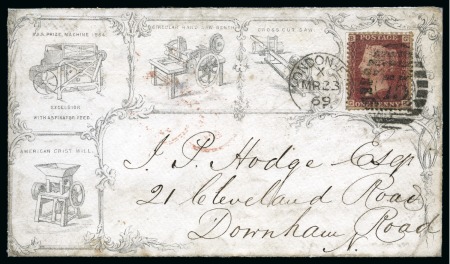 R.A.S. PRIZE, MACHINE 1864.
CIRCULAR HAND SAW BENCH
CROSS CUT SAW
POSTAGE
LONDON
X
MR 23
69
ONE PENNY
EXCELSIOR
WITH ASPIRATOR FEED.
AMERICAN GRIST MILL.
J. P. Hodge Esqr
21 Cleveland Road
Downham Road
N.